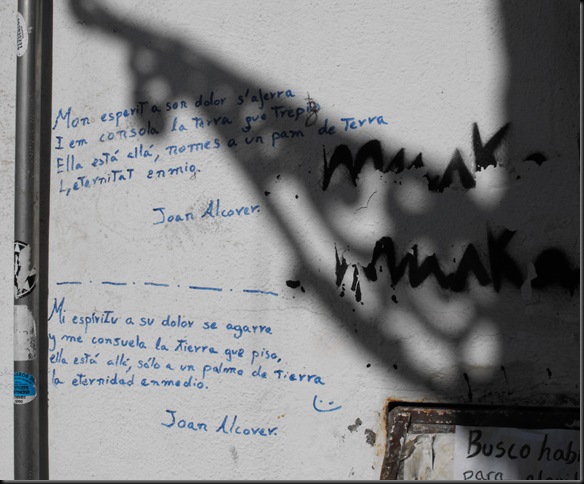 Mon esperit a son dolor s'aferra
I em consola la terra que trepig
Ella está allá, nomes a un pam de Terra
L'eternitat enmig.
Joan Alcover.
Mi espíritu a su dolor se agarra
y me consuela la tierra que piso,
ella está allá, sólo a un palmo de tierra
la eternidad enmedio.
Joan Alcover.
Busco hab
para